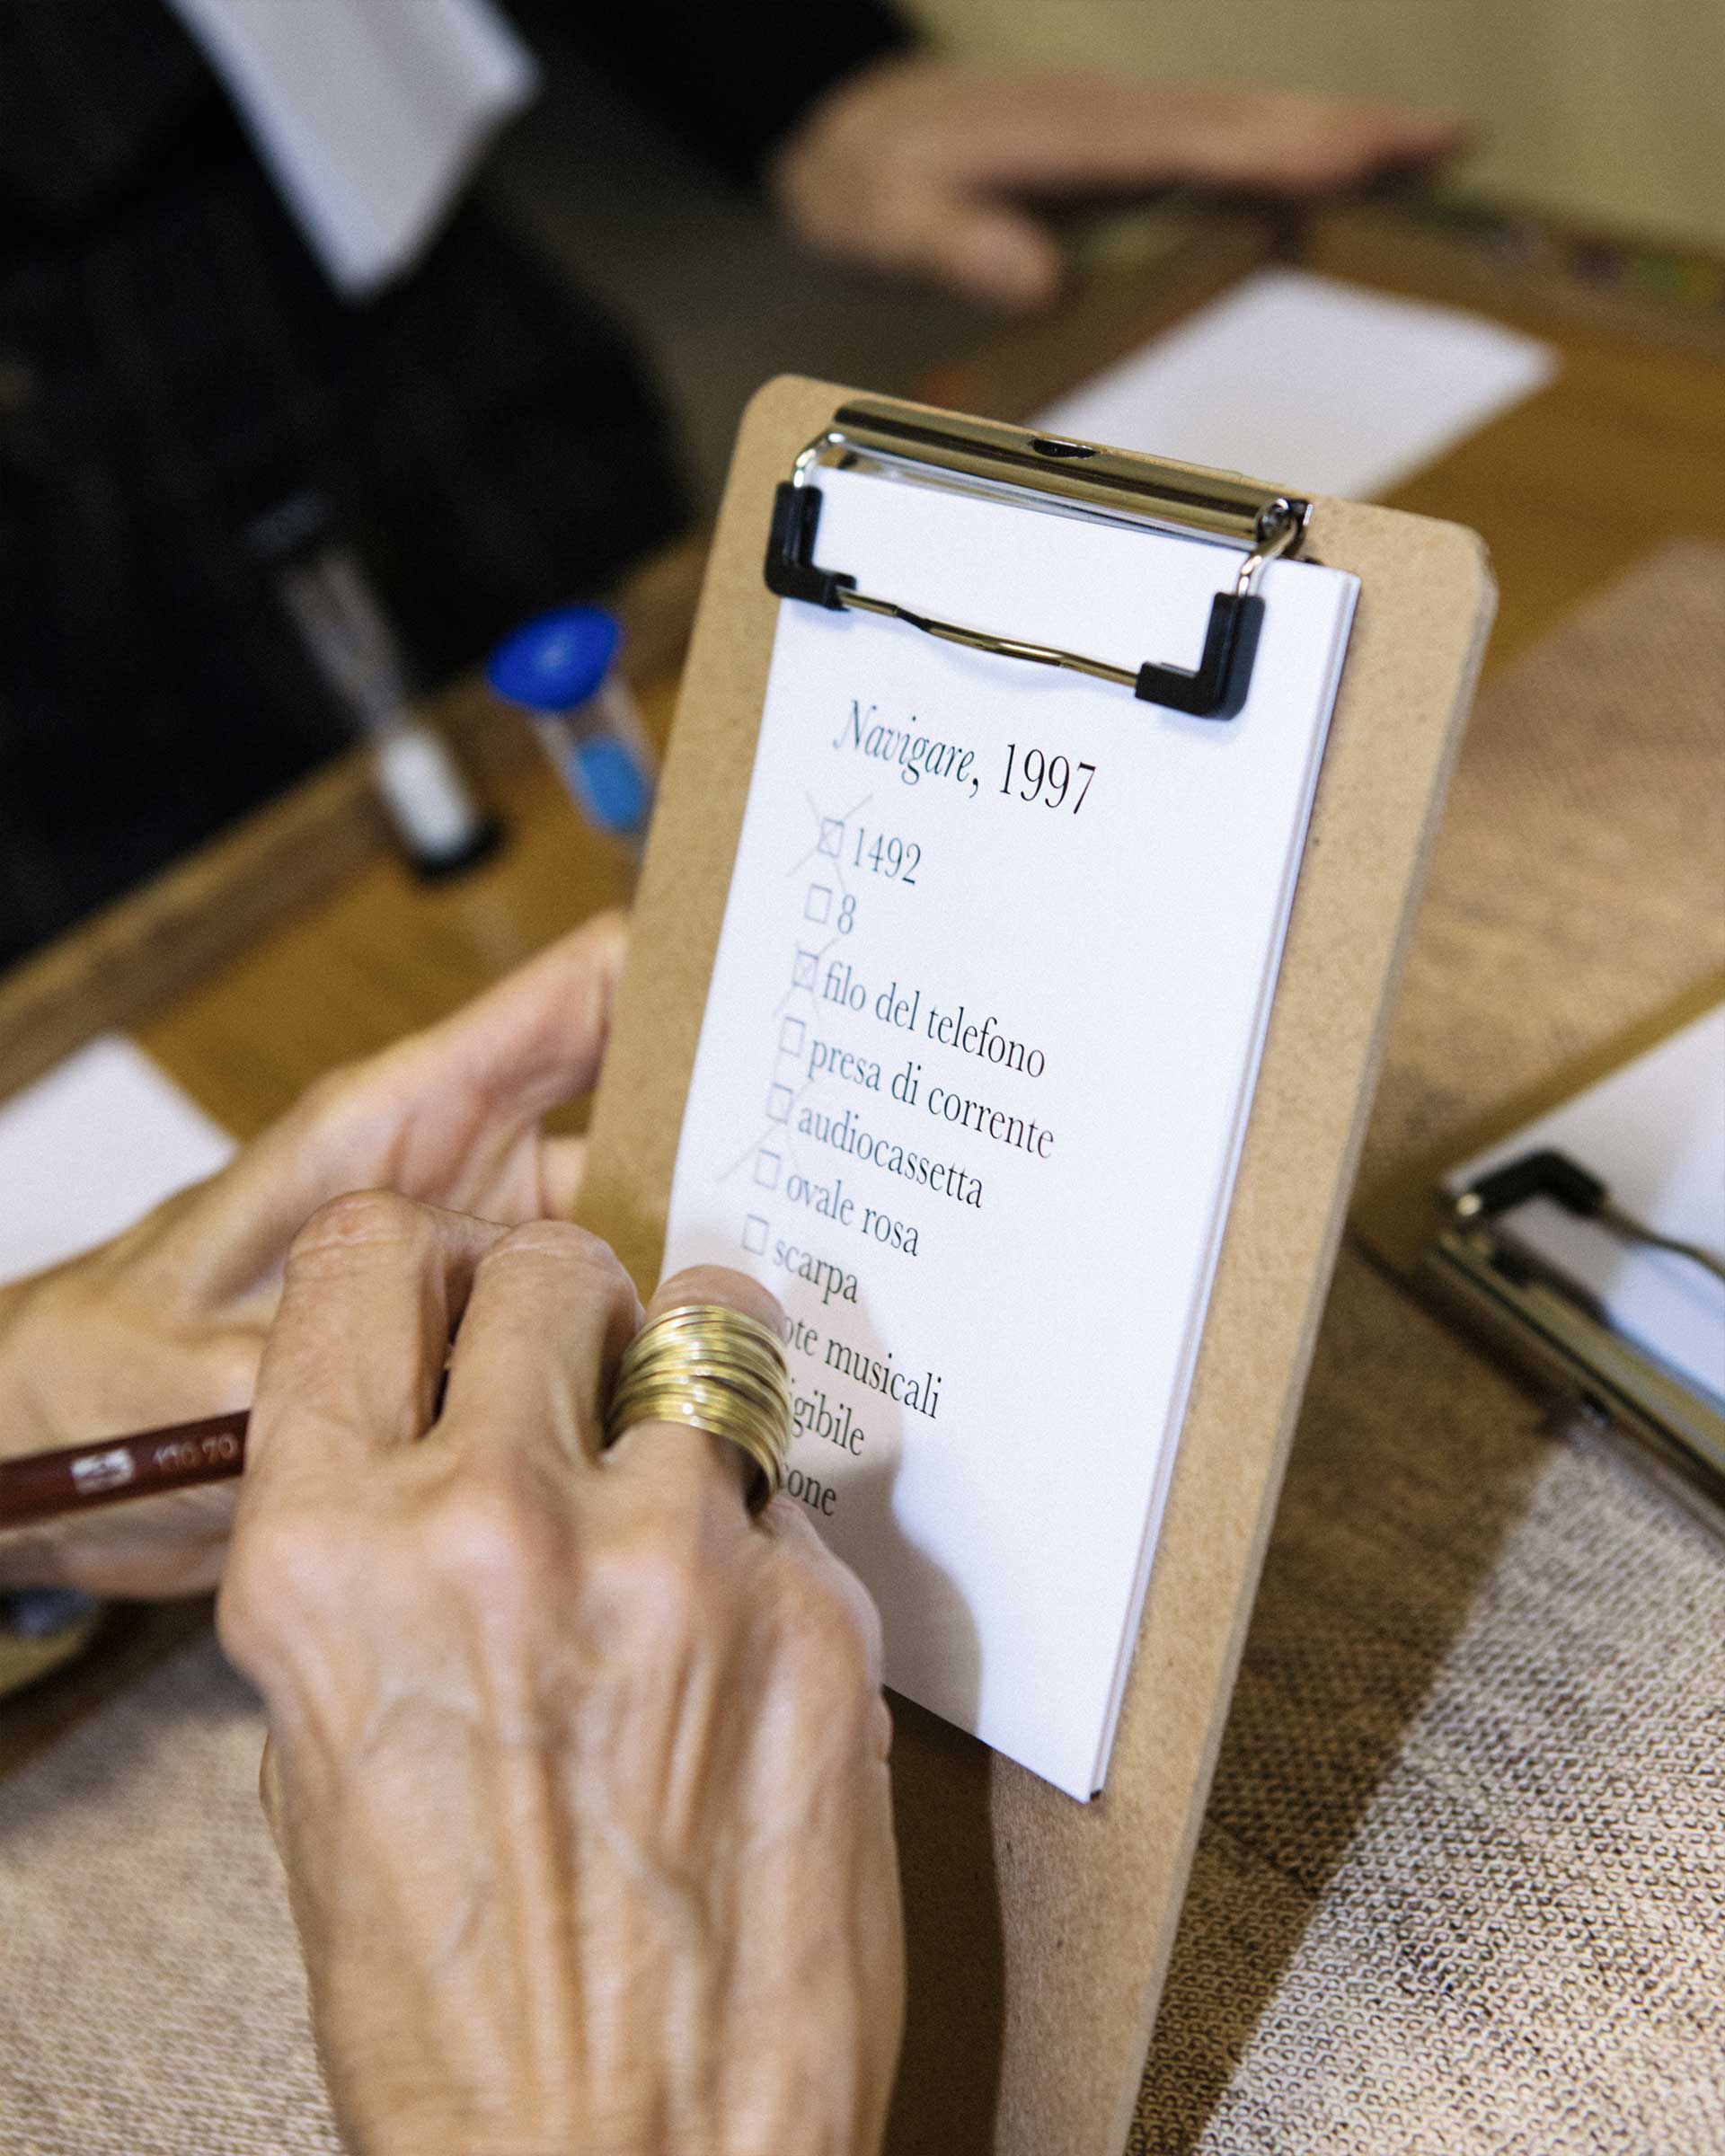 Navigare, 1997
1492
8
filo del telefono
presa di corrente
audiocassetta
ovale rosa
scarpa
ote musicali
igibile
cone